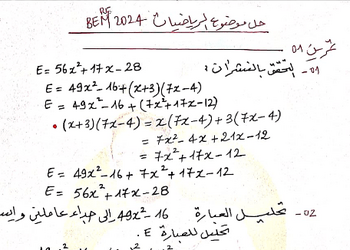 حل موضوع الرياضيات BEM 2024
تمرين 01
01- التحقق بالنشر ان:
E = 56x² + 17x - 28
E = 49x² - 16 + (x+3)(7x-4)
E = 49x² - 16 + (7x² + 17x - 12)
• (x+3)(7x-4) = x(7x-4) + 3(7x-4)
= 7x² - 4x + 21x - 12
= 7x² + 17x - 12
E = 49x² - 16 + 7x² + 17x - 12
E = 56x² + 17x - 28
02- تحليل العبارة 49x² - 16 إلى جداء عاملين
تحليل للعبارة E.